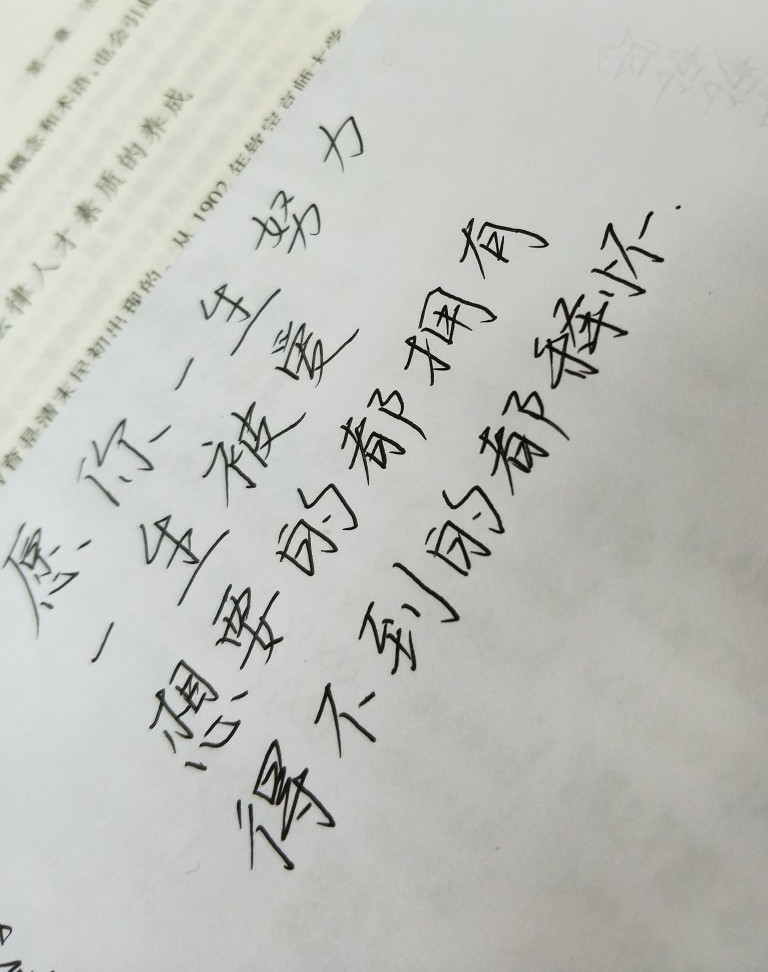 第一章
种概念和术语,也会引
法律人才素质的养成
育是清末民初出现的。从1902年钦定京师大学
愿你一生努力
一生被爱
想要的都拥有
得不到的都释怀.